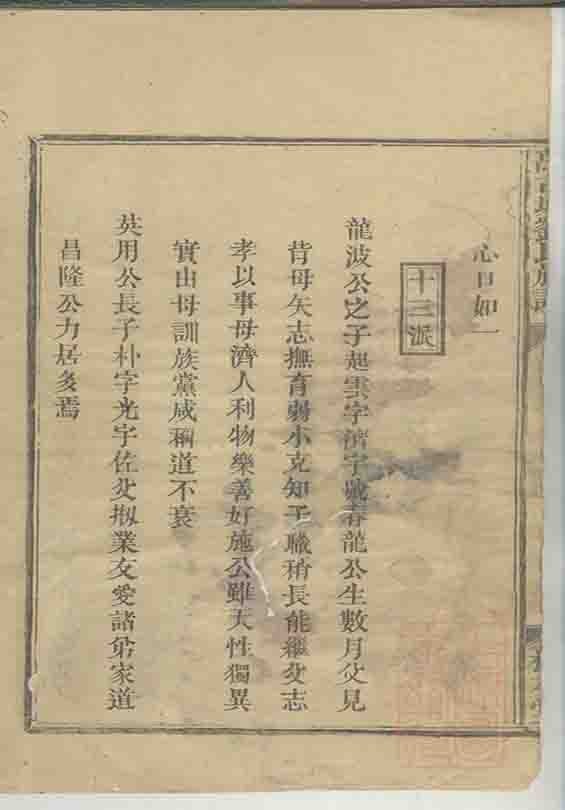 心日如一
十三派
龍波公之子起雲字濟宇號春龍公生數月父見
背母矢志撫育弱小克知子職稍長能繼父志
孝以事母濟人利物樂善好施公雖天性獨異
實由母訓族黨咸稱道不衰
英用公長子朴字光宇佐父拟業友愛諸弟家道
昌隆公力居多焉